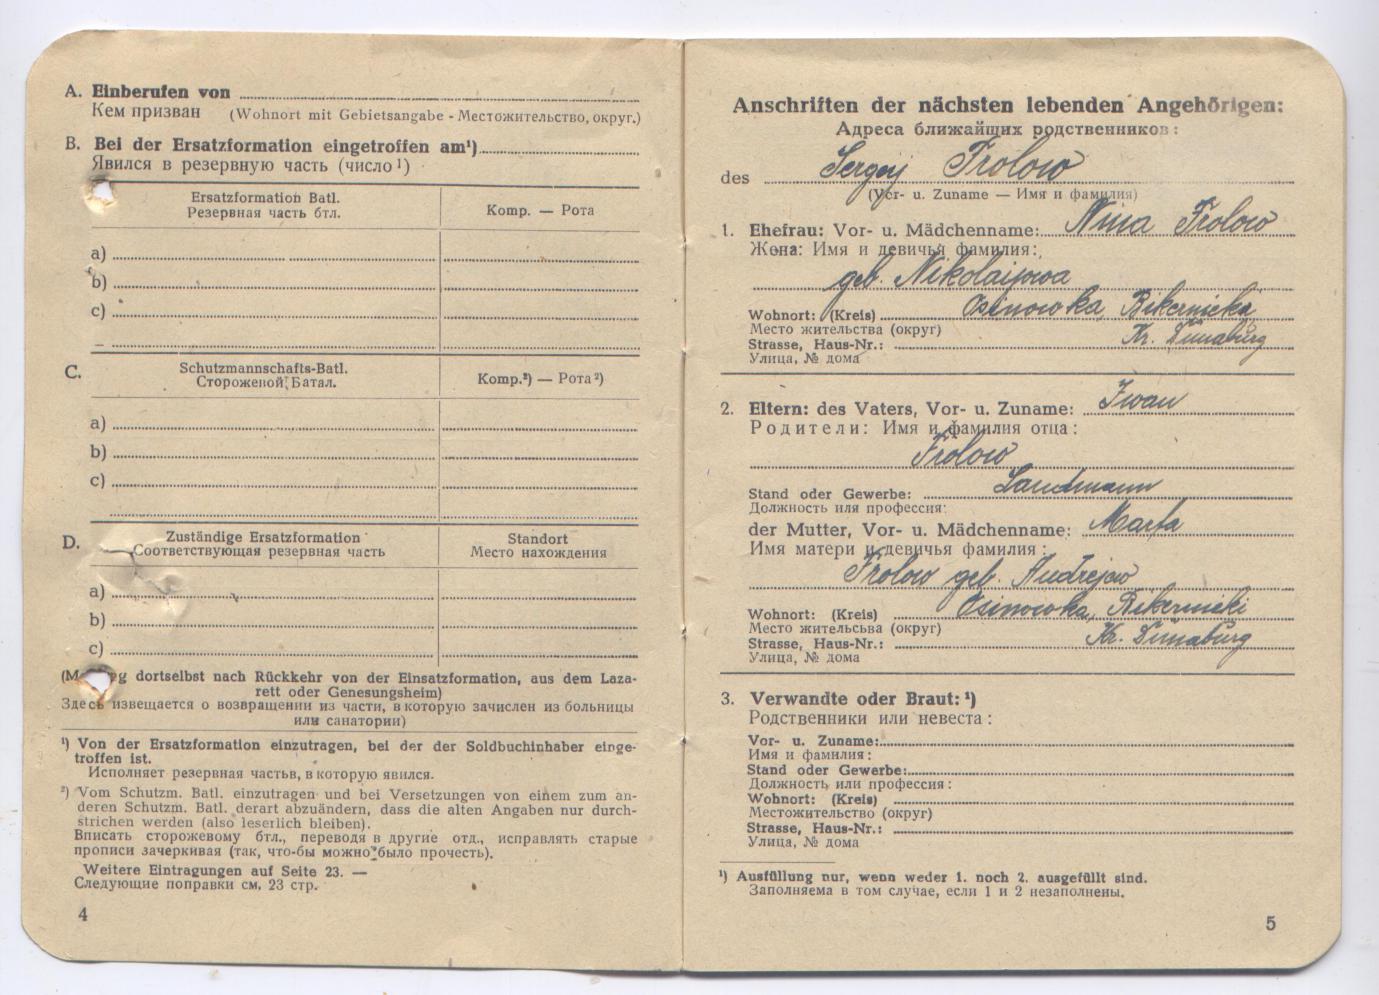 A. Einberufen von
Кем призван (Wohnort mit Gebietsangabe - Местожительство, округ.)
B. Bei der Ersatzformation eingetroffen am¹)
Явился в резервную часть (число ¹)
Ersatzformation Batl.
Резервная часть бтл.
Komp. — Рота
a)
b)
c)
C. Schutzmannschafts-Batl.
Стороженой Батал.
Komp.²) — Рота ²)
a)
b)
c)
D. Zuständige Ersatzformation
Соответствующая резервная часть
Standort
Место нахождения
a)
b)
c)
dortselbst nach Rückkehr von der Einsatzformation, aus dem Laza-
rett oder Genesungsheim)
Здесь извещается о возвращении из части, в которую зачислен из больницы
или санатории)
¹) Von der Ersatzformation einzutragen, bei der der Soldbuchinhaber einge-
troffen ist.
Исполняет резервная частьв, в которую явился.
²) Vom Schutzm. Batl. einzutragen und bei Versetzungen von einem zum an-
deren Schutzm. Batl. derart abzuändern, dass die alten Angaben nur durch-
strichen werden (also leserlich bleiben).
Вписать сторожевому бтл., переводя в другие отд., исправлять старые
прописи зачеркивая (так, что-бы можно было прочесть).
Weitere Eintragungen auf Seite 23. —
Следующие поправки см, 23 стр.
4
Anschriften der nächsten lebenden Angehörigen:
Адреса ближайщих родственников:
des Sergej Frolow
(Vor- u. Zuname — Имя и фамилия)
1. Ehefrau: Vor- u. Mädchenname: Nina Frolow
Жена: Имя и девичья фамилия:
geb. Nikolajowa
Wohnort: (Kreis) Osinowka, Bikernieki
Место жительства (округ) Kr. Dünaburg
Strasse, Haus-Nr.:
Улица, № дома
2. Eltern: des Vaters, Vor- u. Zuname: Iwan
Родители: Имя и фамилия отца:
Frolow
Stand oder Gewerbe: Landmann
Должность иля профессия:
der Mutter, Vor- u. Mädchenname: Marfa
Имя матери и девичья фамилия:
Frolow geb. Andrejew
Wohnort: (Kreis) Osinowka, Bikernieki
Место жительсьва (округ) Kr. Dünaburg
Strasse, Haus-Nr.:
Улица, № дома
3. Verwandte oder Braut: ¹)
Родственники или невеста:
Vor- u. Zuname:
Имя и фамилия:
Stand oder Gewerbe:
Должность или профессия:
Wohnort: (Kreis)
Местожительство (округ)
Strasse, Haus-Nr.:
Улица, № дома
¹) Ausfüllung nur, wenn weder 1. noch 2. ausgefüllt sind.
Заполняема в том случае, если 1 и 2 незаполнены.
5